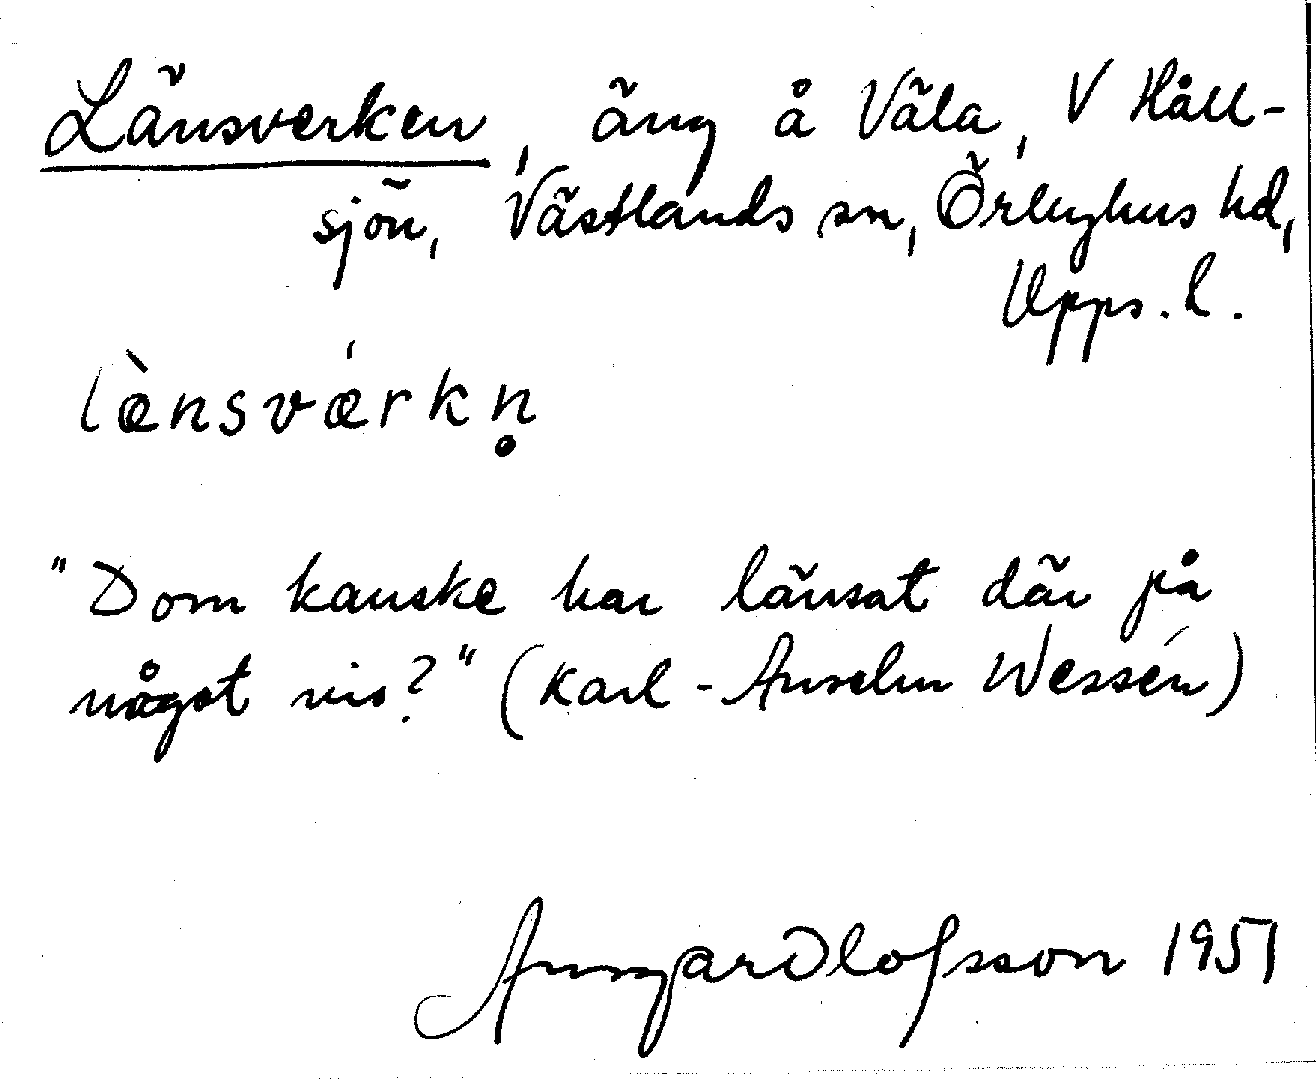 Länsverken, äng å Väla, V Håll-
sjön, Västlands sn, Örbyhus hd,
Upps. l.
lænsværkn̥
"Dom kanske har länsat där på
något vis?" (Karl-Anselm Wessén)
Ansgar Olofsson 1951